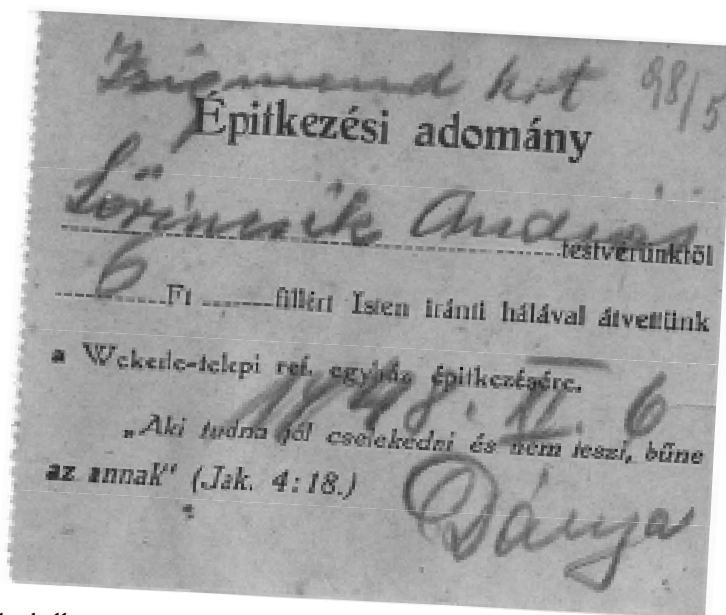 Zsigmond krt 98/5
Építkezési adomány
Lőrincsik András
testvérünktől
6 Ft fillért Isten iránti hálával átvettünk
a Wekerle-telepi ref. egyház építkezésére.
1948. II. 6
„Aki tudna jól cselekedni és nem teszi, bűne
az annak" (Jak. 4:18.)
Dánya